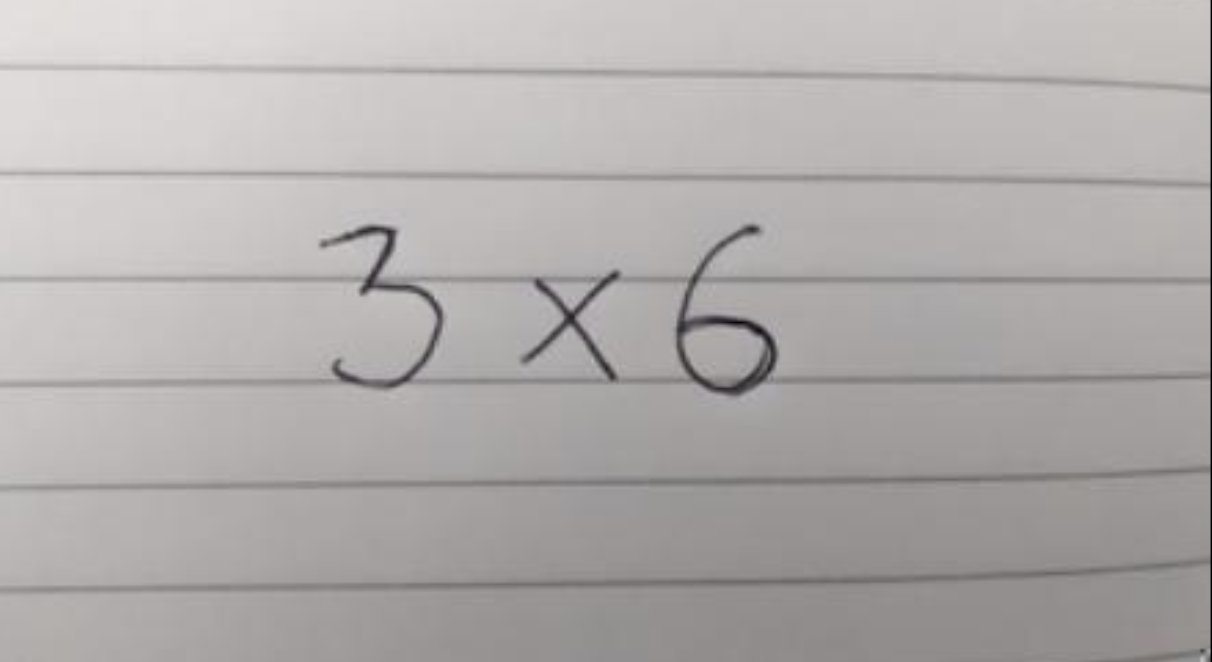 3 × 6